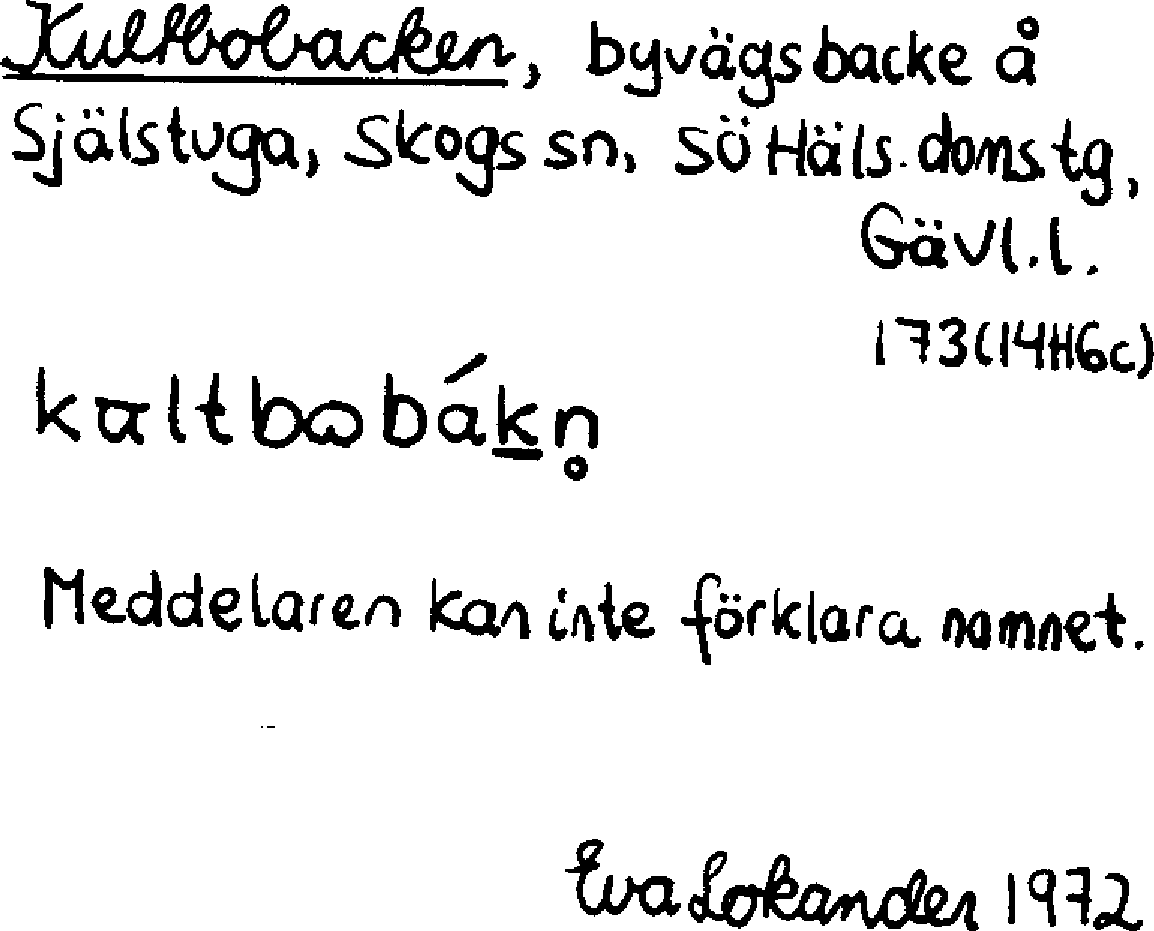 Kultbobacken, byvägsbacke å
Själstuga, Skogs sn, SÖ Häls. doms.tg,
Gävl.l.
173(14H6c)
kɑltbɷbákn̥
Meddelaren kan inte förklara namnet.
Eva Lokander 1972